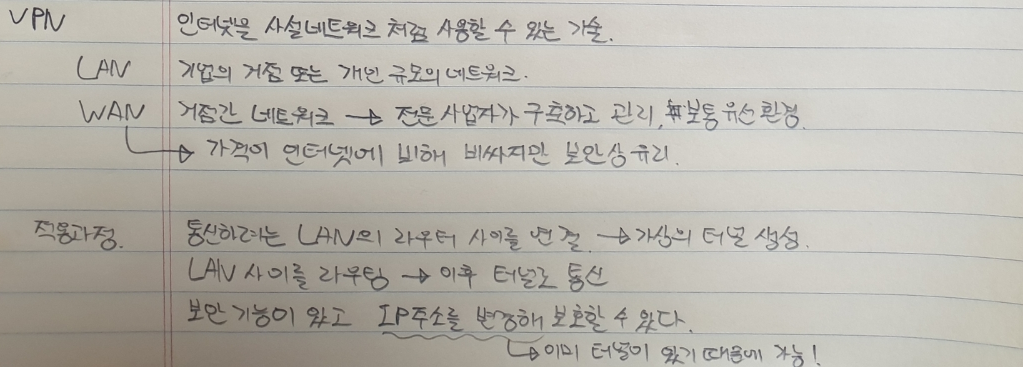 VPN 인터넷을 사설네트워크 처럼 사용할 수 있는 기술.
LAN 기업의 거점 또는 개인 규모의 네트워크.
WAN 거점간 네트워크 → 전문 사업자가 구축하고 관리, #보통 유선 환경.
→ 가격이 인터넷에 비해 비싸지만 보안상 유리.
적용과정. 통신하려는 LAN의 라우터 사이를 연결 → 가상의 터널 생성.
LAN 사이를 라우팅 → 이후 터널로 통신
보안 기능이 있고 IP주소를 변경해 보호할 수 있다.
→ 이미 터널이 있기 때문에 가능!